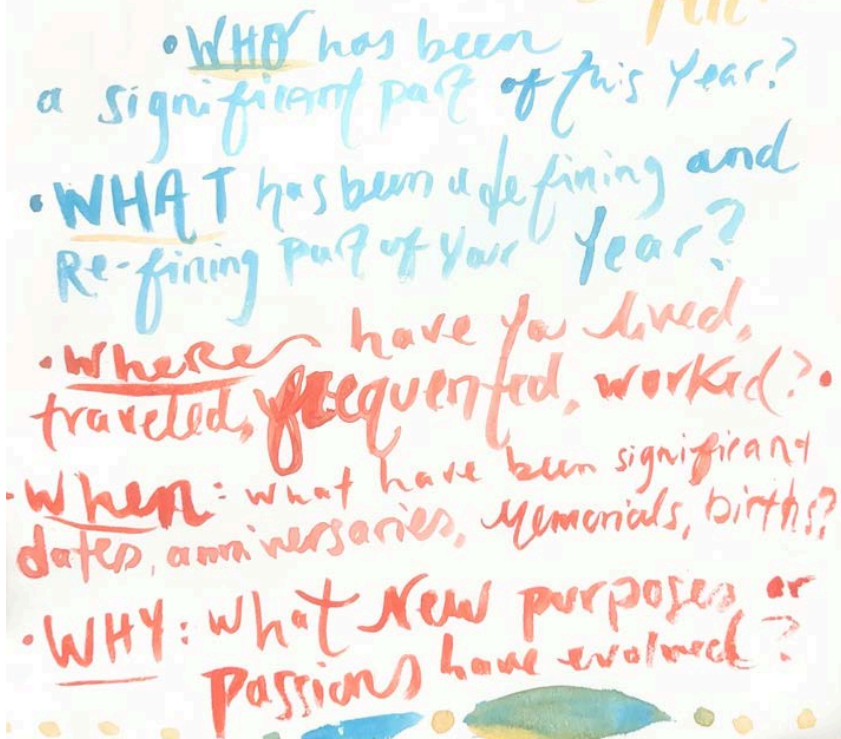 • WHO has been
a significant part of this year?
• WHAT has been a defining and
Re-fining part of your year?
• Where have you lived,
traveled, frequented, worked? •
• When: what have been significant
dates, anniversaries, Memorials, births?
• WHY: what New purposes or
Passions have evolved?